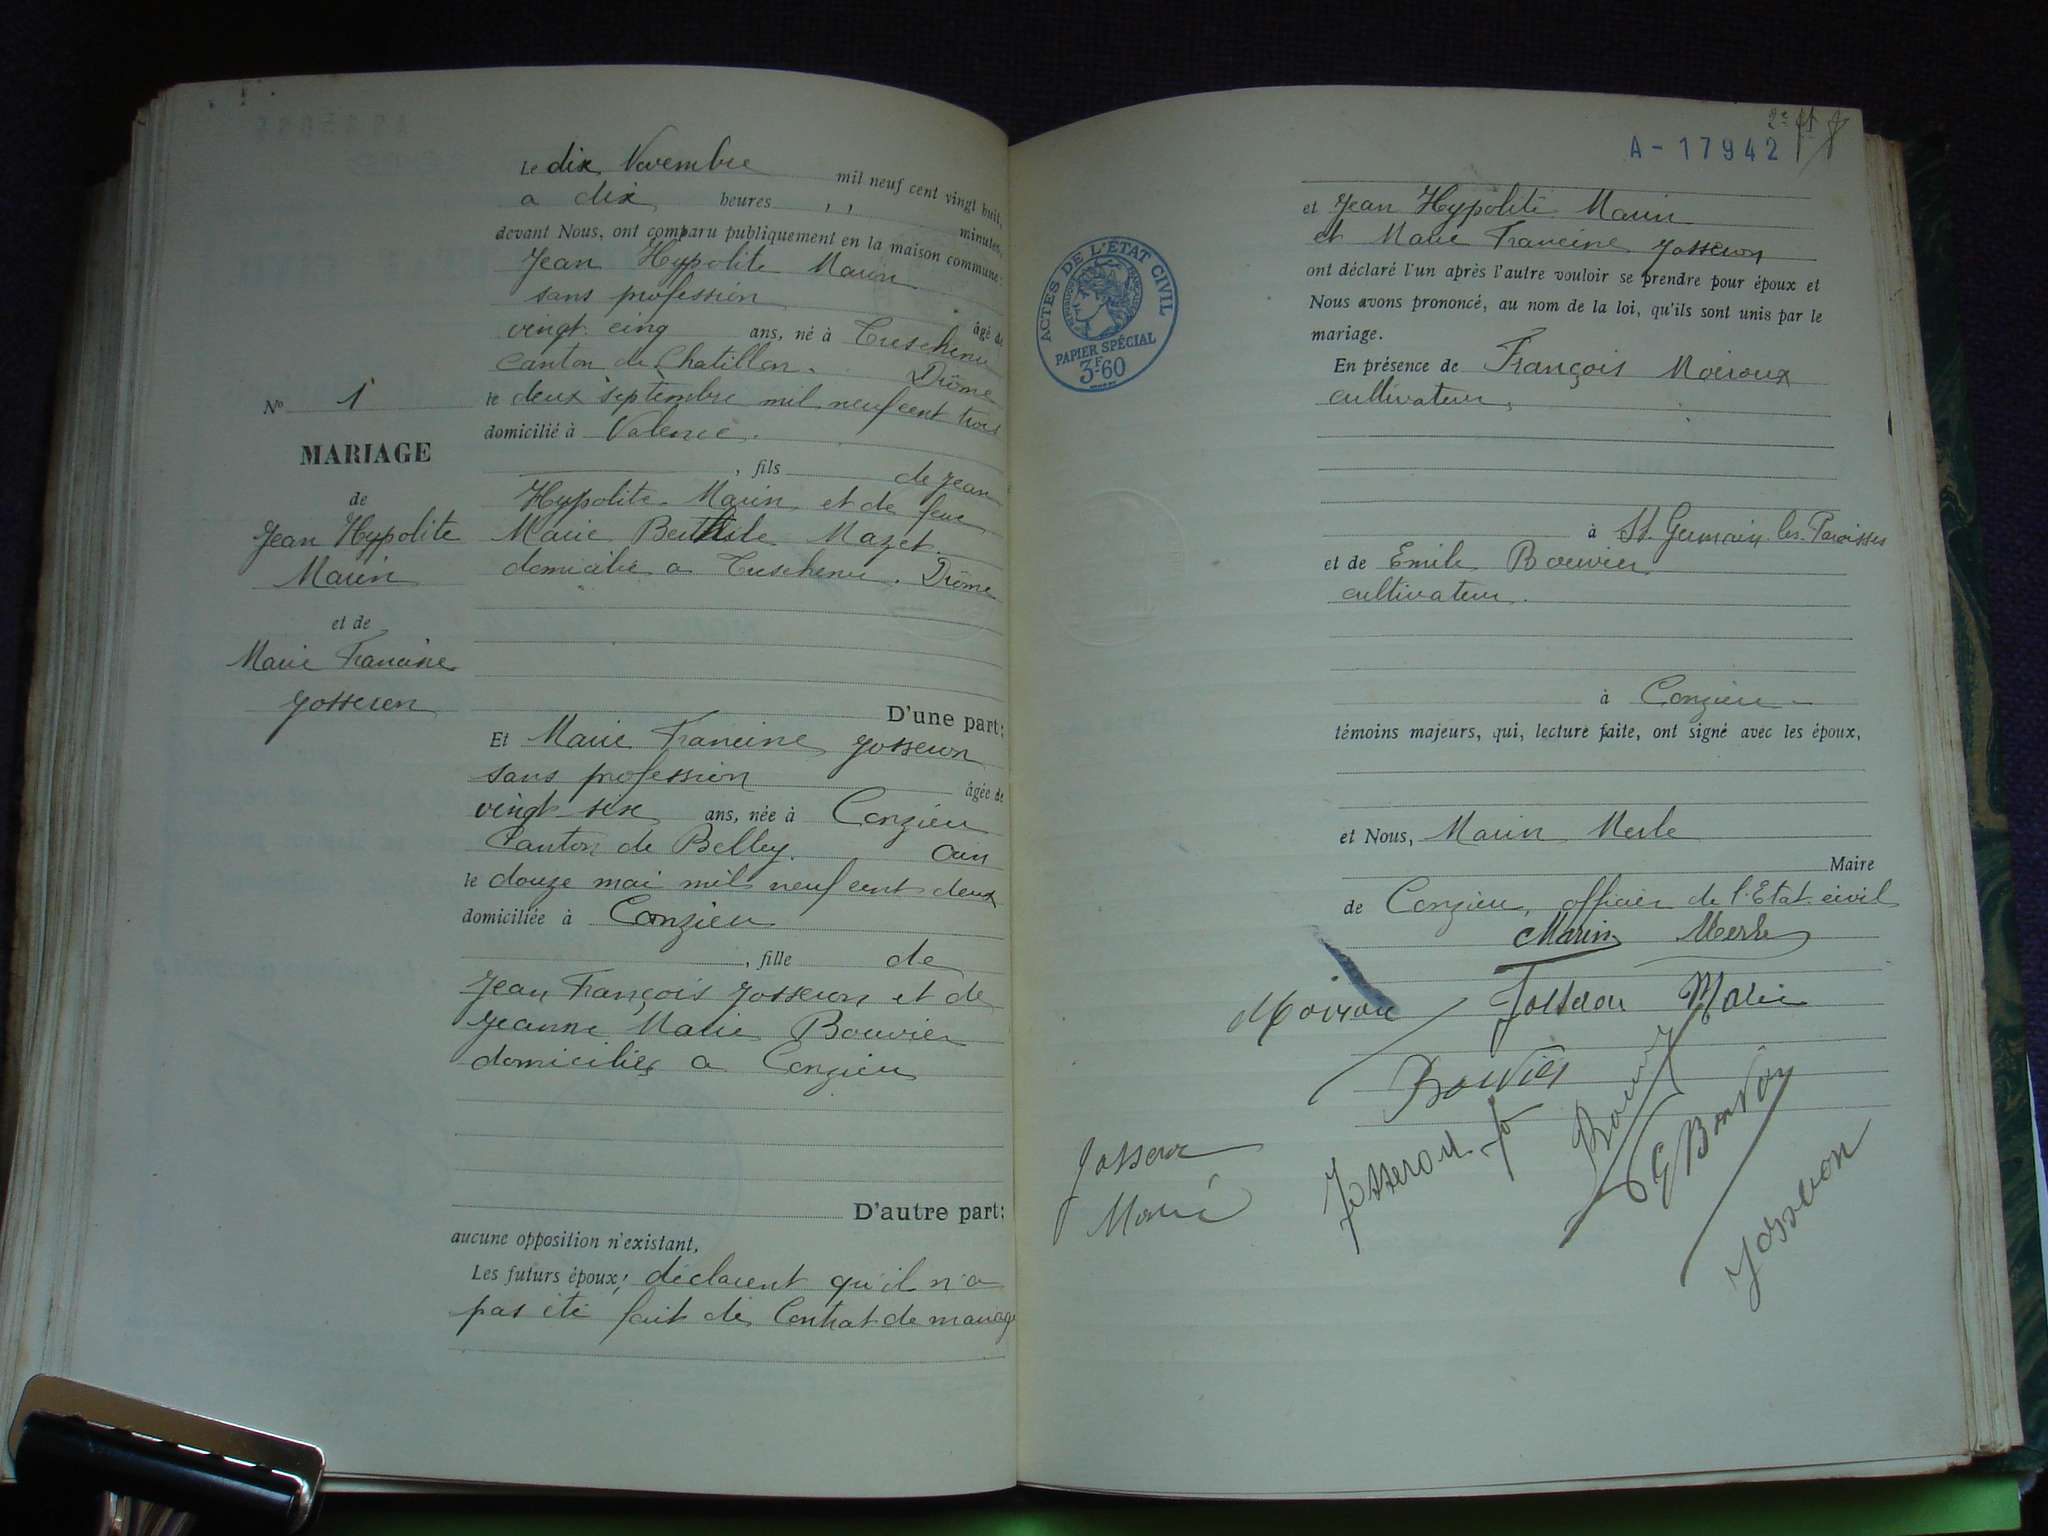 Le dix Novembre mil neuf cent vingt huit,
a dix heures , , minutes,
devant Nous, ont comparu publiquement en la maison commune:
Jean Hypolite Marin
sans profession âgé de
vingt cinq ans, né à Creschenu
Canton de Chatillon. Drôme
le deux septembre mil neuf cent trois
domicilié à Valence.
, fils de Jean
Hypolite Marin et de feue
Marie Berthile Mazet
domicilié a Creschenu. Drôme
D'une part:
Nº 1
MARIAGE
de
Jean Hypolite
Marin
et de
Marie Francine
Josseron
Et Marie Francine Josseron
sans profession âgée de
vingt six ans, née à Conzieu
Canton de Belley. Ain
le douze mai mil neuf cent deux
domiciliée à Conzieu
, fille de
Jean François Josseron et de
Jeanne Marie Bouvier
domiciliés a Conzieu
D'autre part:
aucune opposition n'existant,
Les futurs époux, déclarent qu'il n'a
pas été fait de Contrat de mariage
A-17942
ACTES DE L'ÉTAT CIVIL
PAPIER SPÉCIAL
3F60
et Jean Hypolite Marin
et Marie Francine Josseron
ont déclaré l'un après l'autre vouloir se prendre pour époux et
Nous avons prononcé, au nom de la loi, qu'ils sont unis par le
mariage.
En présence de François Moiroux
cultivateur,
à St. Germain les Paroisses
et de Emile Bouvier
cultivateur.
à Conzieu
témoins majeurs, qui, lecture faite, ont signé avec les époux,
et Nous, Marin Merle
Maire
de Conzieu, officier de l'Etat civil
Marin Merle
Josseron Marie
Bouvier
Josseron
Josseron